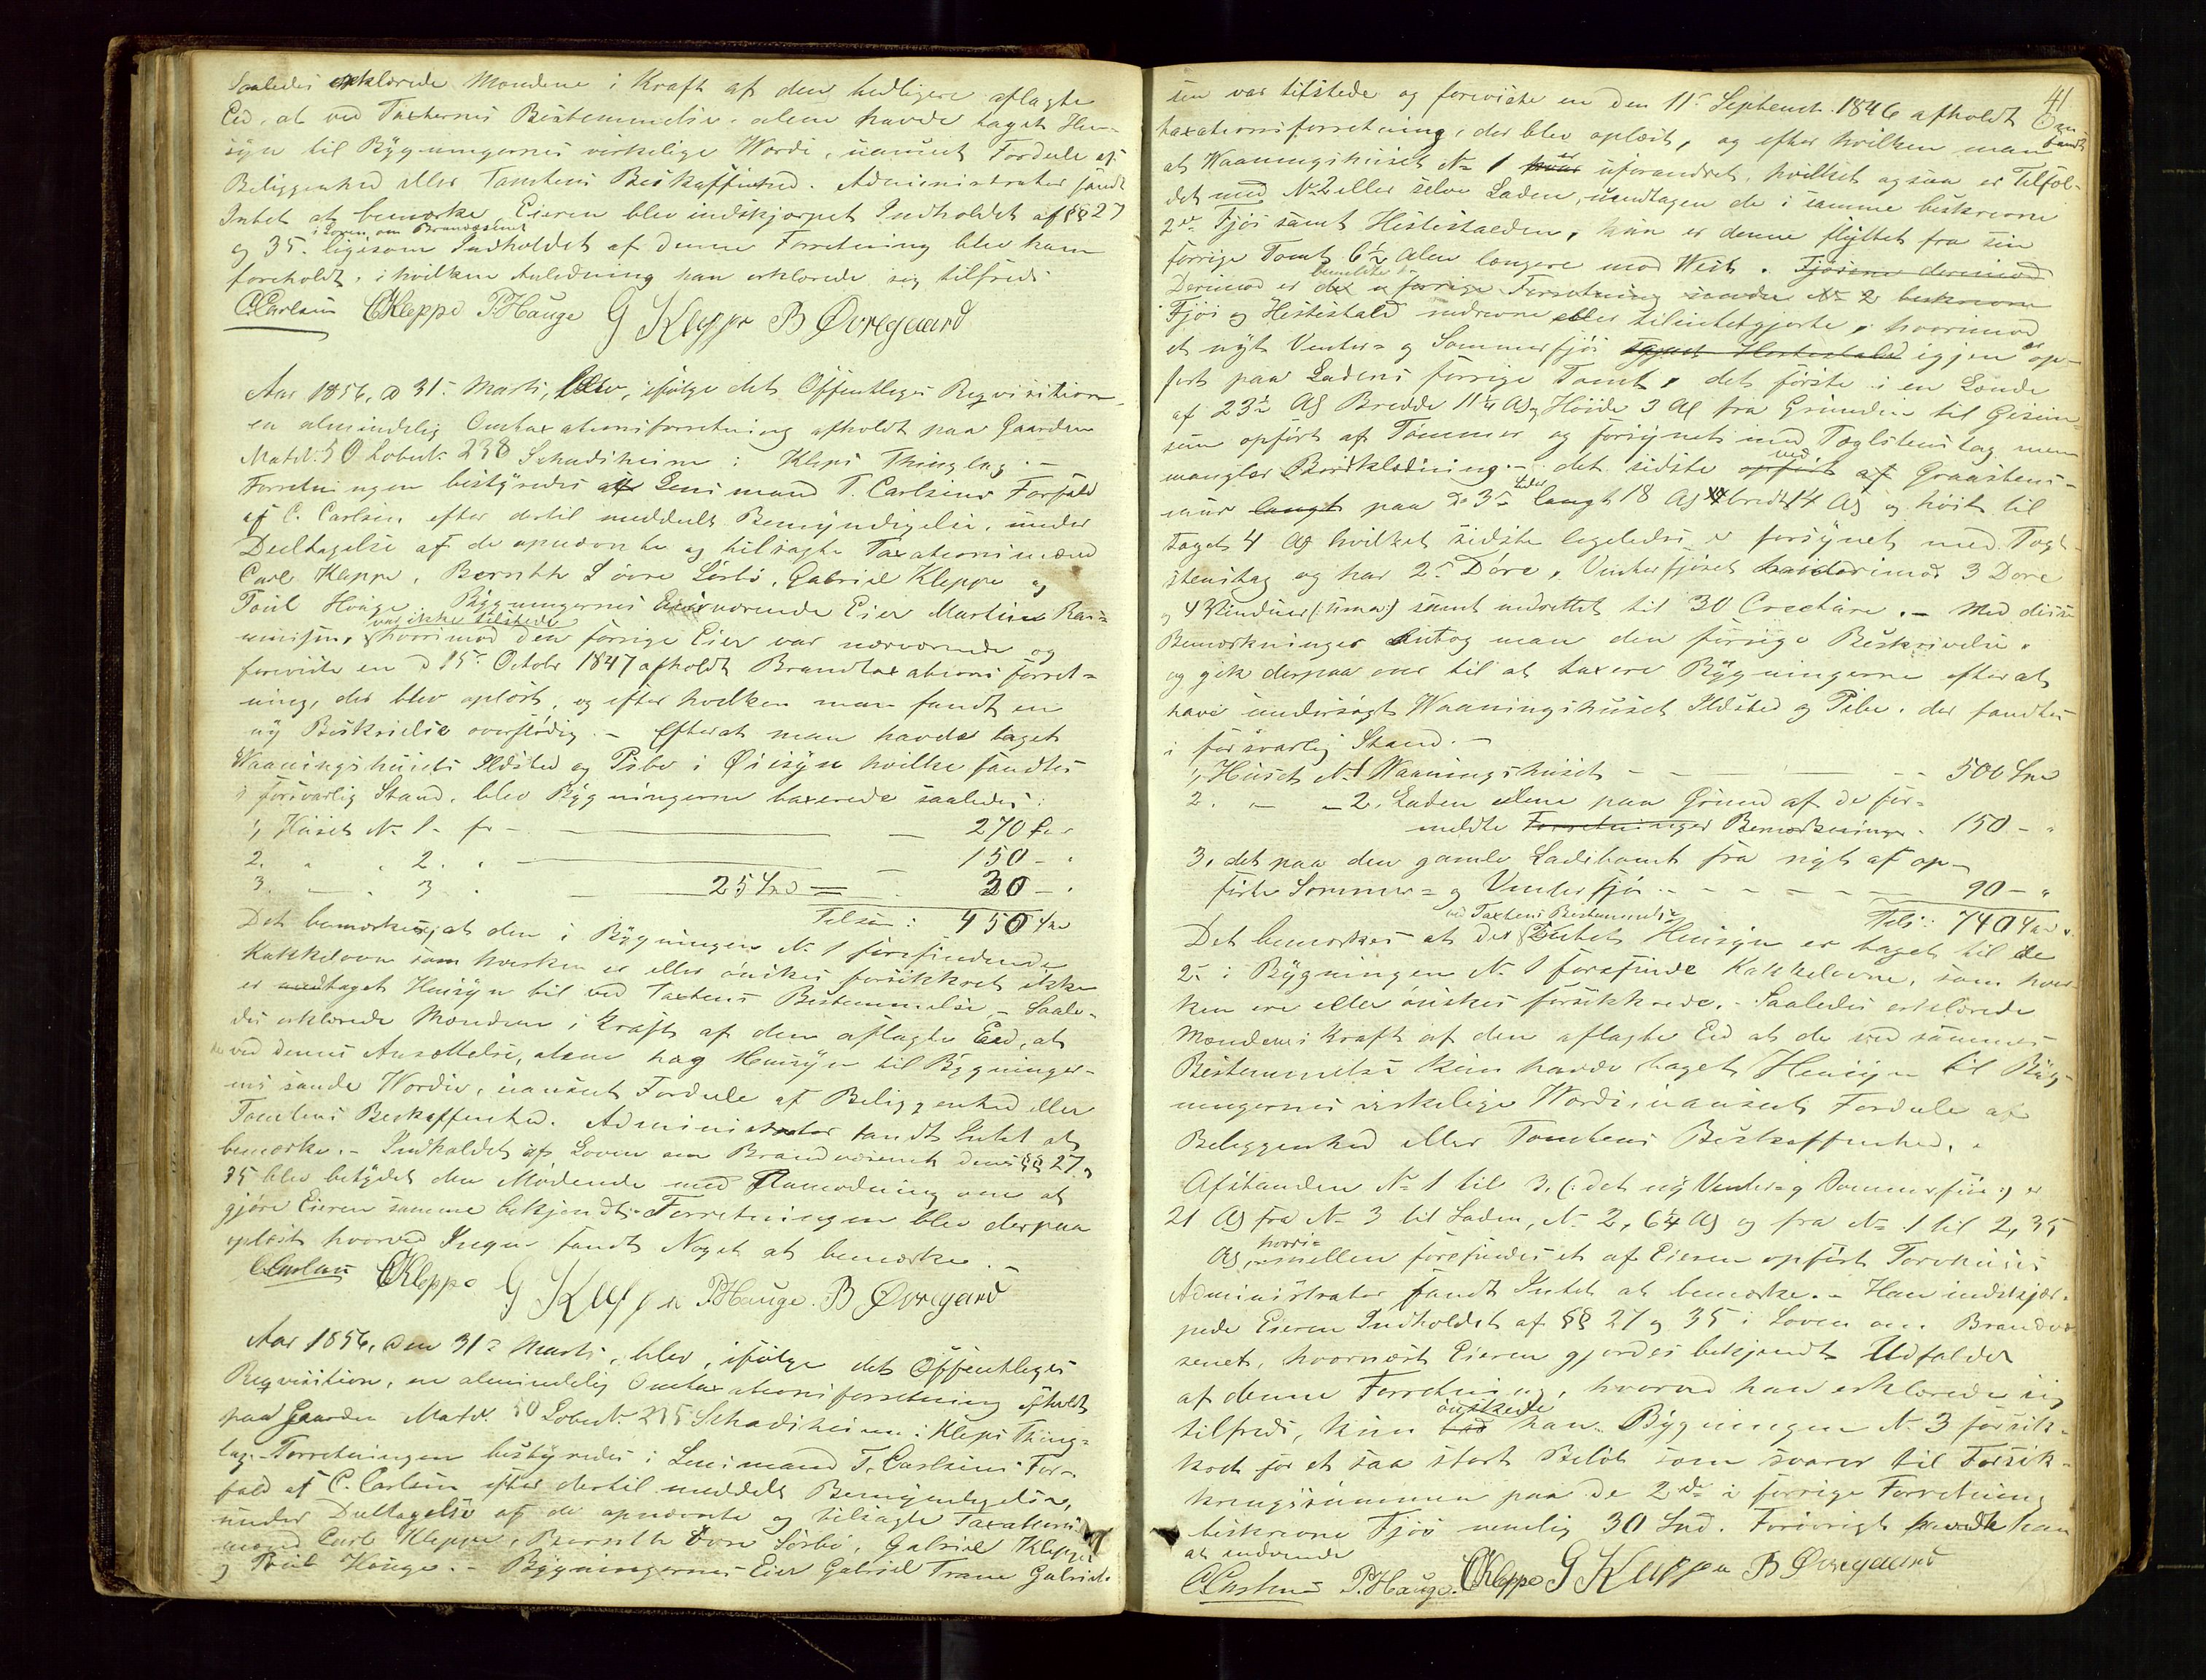 Saaledes erklærede Mændene i Kraft af den hedligere aflagte
Eed, at ved Taxternes Bestemmelse, alene havde taget Hen-
syn til Bygningernes virkelige Værdi, uanseet Fordele af
Beliggenhed eller Tomtens Beskaffenhed. Administrator fandt
Intet at bemærke, Eieren blev indskjærpet Indholdet af §§ 27
i Loven om Brandvæsenet
og 35. ligesom Indholdet af denne Forretning blev ham
foreholdt, i hvilken Anledning han erklærede sig tilfreds
C. Carlsen CKleppe PHauge G Kleppe B Øvregaard
Aar 1856, d 31te Marts, blev, ifølge det Offentliges Reqvisition
en almindelig Omtaxationsforretning afholdt paa Gaarden
Matr. 50 Løbenr. 238 Schadsheim i Kleps Thinglag.-
Forretningen bestyredes af Lensmand T. Carlsens Forfald
af C. Carlsen efter dertil meddeelt Bemyndigelse, under
Deeltagelse af de opnævnte og tilsagte Taxationsmænd
Carl Kleppe, Bernth Øvre Sørbø, Gabriel Kleppe og
Poul Hauge. Bygningernes nuværende Eier Martin Ras-
var ikke tilstede
mussen, hvorimod den forrige Eier var nærværende og
foreviste en d 15de Octobr 1847 afholdt Brandtaxationsforret-
ning, der blev oplæst, og efter hvilken man fandt en
ny Beskrivelse overflødig.- Efterat man havde taget
Vaaningshusets Ildsted og Pibe i Øiesyn hvilke fandtes
i forsvarlig Stand, blev Bygningerne taxerede saaledes:
1, Huset No 1. for - 270 Spd
2. " " 2. " - 150 - "
3. - " 3 " 25 Spd = 30 - "
Tilsm: 450 Spd
Det bemærkes, at den i Bygningen No 1 forefindende
Kakkelovn som hverken er eller ønskes forsikkret ikke
er taget Hensyn til ved Taxtens Bestemmelse.- Saale-
des erklærede Mændene i Kraft af den aflagte Eed, at
de ved dennes Ansættelse, alene tog Hensyn til Bygninger-
nes sande Værdie, uanseet Fordele af Beliggenhed eller
Tomtens Beskaffenhed. Administrator fandt Intet at
bemærke.- Indholdet af Loven om Brandvæsenet dens §§ 27 og
35 blev betydet den Mødende med Anmodning om at
gjøre Eieren samme bekjendt. Forretningen blev derpaa
oplæst hvorved Ingen fandt Noget at bemærke.-
C. Carlsen CKleppe G Kleppe PHauge. B Øvregaard
Aar 1856, den 31te Marts, blev, ifølge det Offentliges
Reqvisition, en almindelig Omtaxationsforretning afholdt
paa Gaarden Matr. 50 Løbenr. 235 Schadsheim i Kleps Thing-
lag.- Forretningen bestyredes i Lensmand T. Carlsens For-
fald af C. Carlsen efter dertil meddelt Bemyndigelse,
under Deeltagelse af de opnævnte og tilsagte Taxations-
mænd Carl Kleppe, Bernth Øvre Sørbø, Gabriel Kleppe
og Poul Hauge.- Bygningernes Eier Gabriel Trane Gabriel-
41
sen var tilstede og foreviste en den 11te Septembr. 1846 afholdt Om-
taxationsforretning, der blev oplæst, og efter hvilken man fandt
at Vaaningshuset No 1 er uforandret, hvilket ogsaa er Tilfæl-
det med No 2 eller selve Laden, undtagen de i samme beskrevne
2de Fjøs samt Hestestalden, kun er denne flyttet fra sin
forrige Tomt 6½ Alen længere mod Vest. Fjøsene derimod
bemeldte
Derimod er det i forrige Forretning under No 2 beskrevne
Fjøs og Hestestald nedrevne eller tilintetgjorte, hvorimod
et nyt Vinter- og Sommerfjøs samt Hestestald igjen er op-
ført paa Ladens forrige Tomt, det første i en Længde
af 23½ Al Bredde 11¼ Al og Høide 3 Al fra Grunden til Gesim-
sen opført af Tømmer og forsynet med Taglsteenstag men
mangler Bordklædning.- det sidste opført af ved Graasteens-
muur langt paa de 3de Sider langt 18 Al bredt 14 Al og høit til
Taget 4 Al hvilket sidste ligeledes er forsynet med Tagl-
steenstag og har 2de Døre, Vinterfjøset derimod 3 Døre
og 4 Vinduer (: smaa :) samt indrettet til 30 Creature.- Med disse
Bemærkninger antog man den forrige Beskrivelse,
og gik derpaa over til at taxere Bygningerne efterat
have undersøgt Vaaningshuset Ildsted og Pibe, der fandtes
i forsvarlig Stand.-
1, Huset No 1 Vaaningshuset - - - 500 Spd
2. - - 2. Laden alene paa Grund af de for-
meldte Forretninger Bemærkninger. 150 - "
3. det paa den gamle Ladetomt fra nyt af op-
førte Sommer- og Vinterfjøs - - - - 90 - "
Tils: 740 Spd
ved Taxtens Bestemmelse
Det bemærkes at der Intet Hensyn er taget til de
2de i Bygningen No 1 forefindende Kakkelovne, som hver-
ken ere eller ønskes forsikkrede.- Saaledes erklærede
Mændene i Kraft af den aflagte Eed at de ved sammes
Bestemmelse kun havde taget Hensyn til Byg-
ningernes virkelige Værdi, uanseet Fordele af
Beliggenhed eller Tomtens Beskaffenhed.
Afstanden No 1 til 3. (: det ny Vinter- og Sommerfjøs :) er
21 Al fra No 3 til Laden, No 2, 6¼ Al og fra No 1 til 2, 35
Al, hvorimellem forefindes et af Eieren opført Torvhuus
Administrator fandt Intet at bemærke.- Han indskjær-
pede Eieren Indholdet af §§ 27 og 35 i Loven om Brandvæ-
senet, hvornæst Eieren gjordes bekjendt Udfaldet
af denne Forretning, hvorved han erklærede sig
tilfreds, kun ønskede han Bygningen No 3 forsik-
kret for et saa stort Beløb som svarer til Forsik-
kringssummen paa de 2de i forrige Forretning
beskrevne Fjøs nemlig 30 Spd. Forøvrigt havde han
at indvende
C. Carlsen P. Hauge. CKleppe G Kleppe B Øvregaard